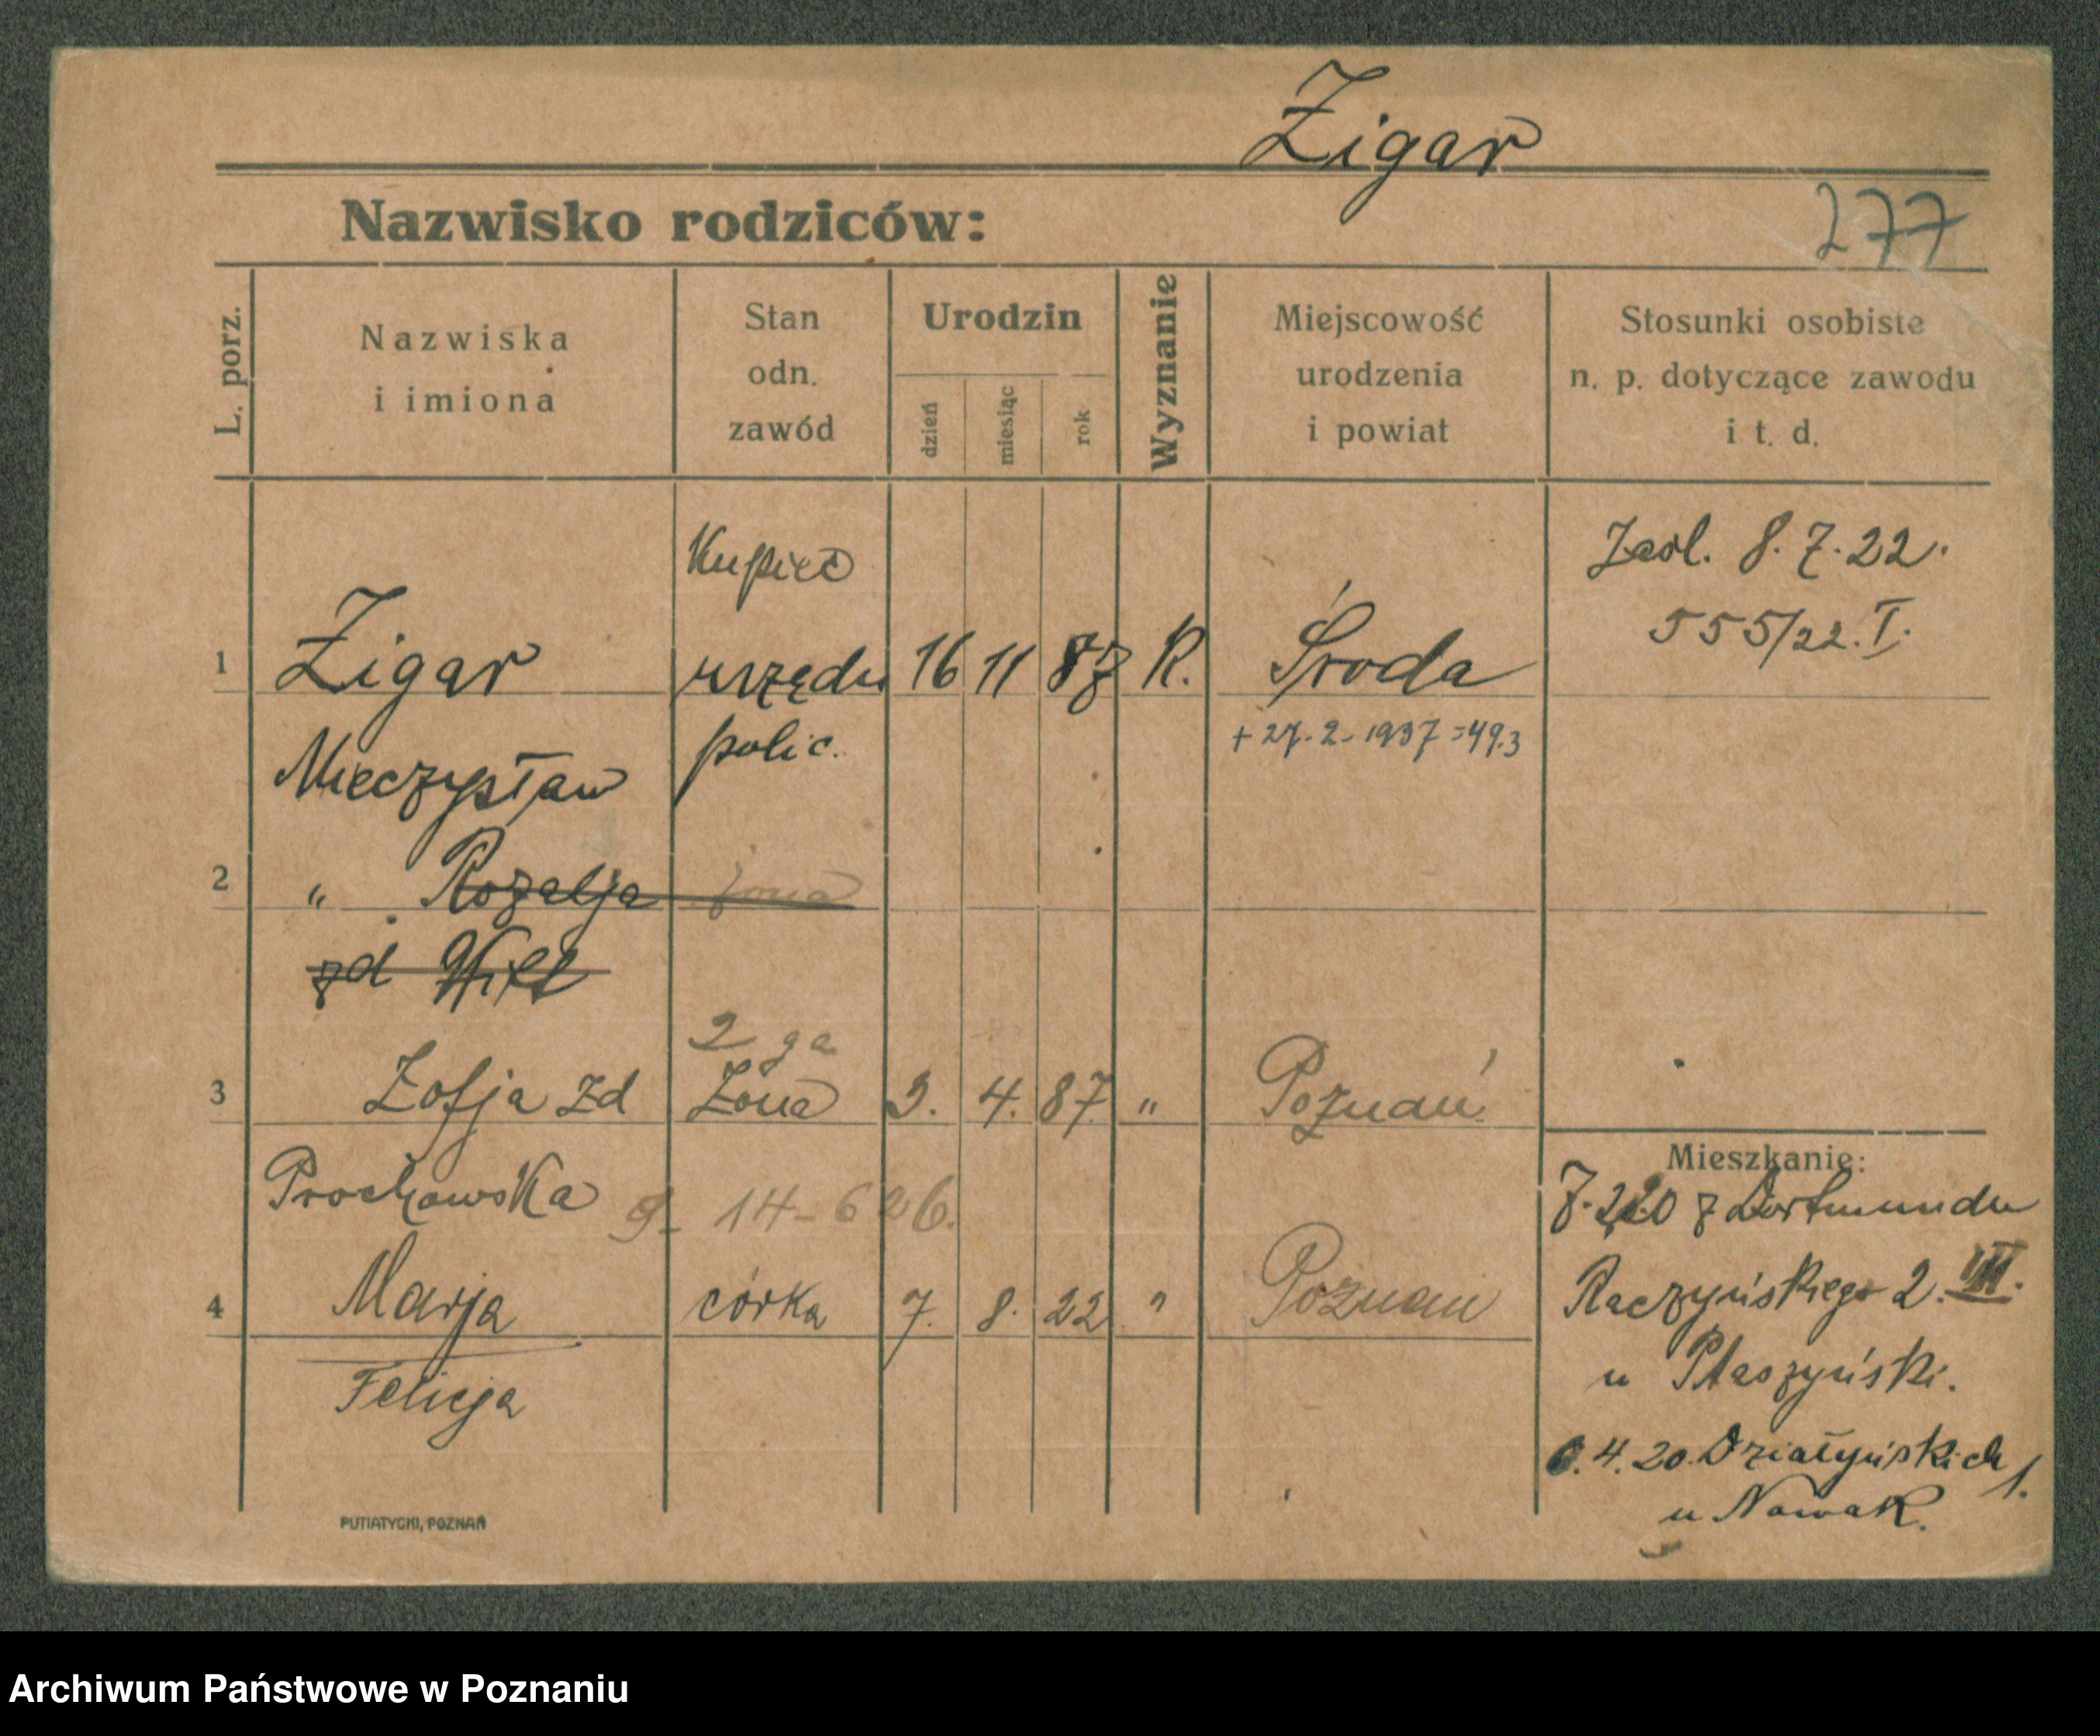 Zigar
277
Nazwisko rodziców:
L. porz.
Nazwiska
i imiona
Stan
odn.
zawód
Urodzin
dzień
miesiąc
rok
Wyznanie
Miejscowość
urodzenia
i powiat
Stosunki osobiste
n. p. dotyczące zawodu
i t. d.
Kupiec
8. 7. 22.
555/22. I.
1 Zigar urzędn 16 11 87 R. Środa
Mieczysław polic.
+ 27. 2. 1937 = 49.3
2 " Rozalja żona
zd
2 ga
3 Zofja zd Żona 3. 4. 87 " Poznań
Mieszkanie:
Prochowska 9-14-626.
z Dortmundu
4 Marja córka 7. 8. 22 " Poznań
Raczyńskiego 2. III.
Felicja
u Ptaszyński.
6. 4. 20. Działyńskich 1.
u Nowak.
PUTIATYCKI, POZNAŃ
Archiwum Państwowe w Poznaniu